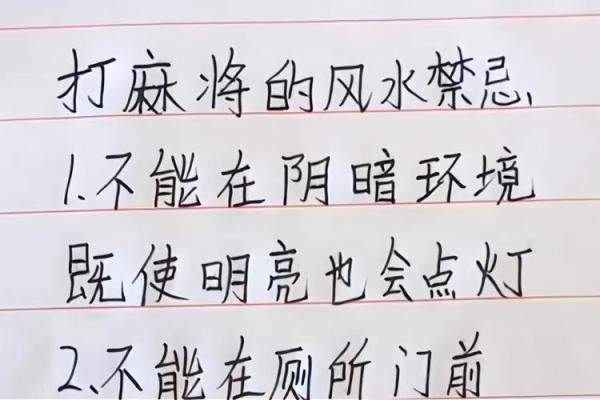 打麻将的风水禁忌
1.不能在阴暗环境
既使明亮也会点灯
2、不能在厕所门前